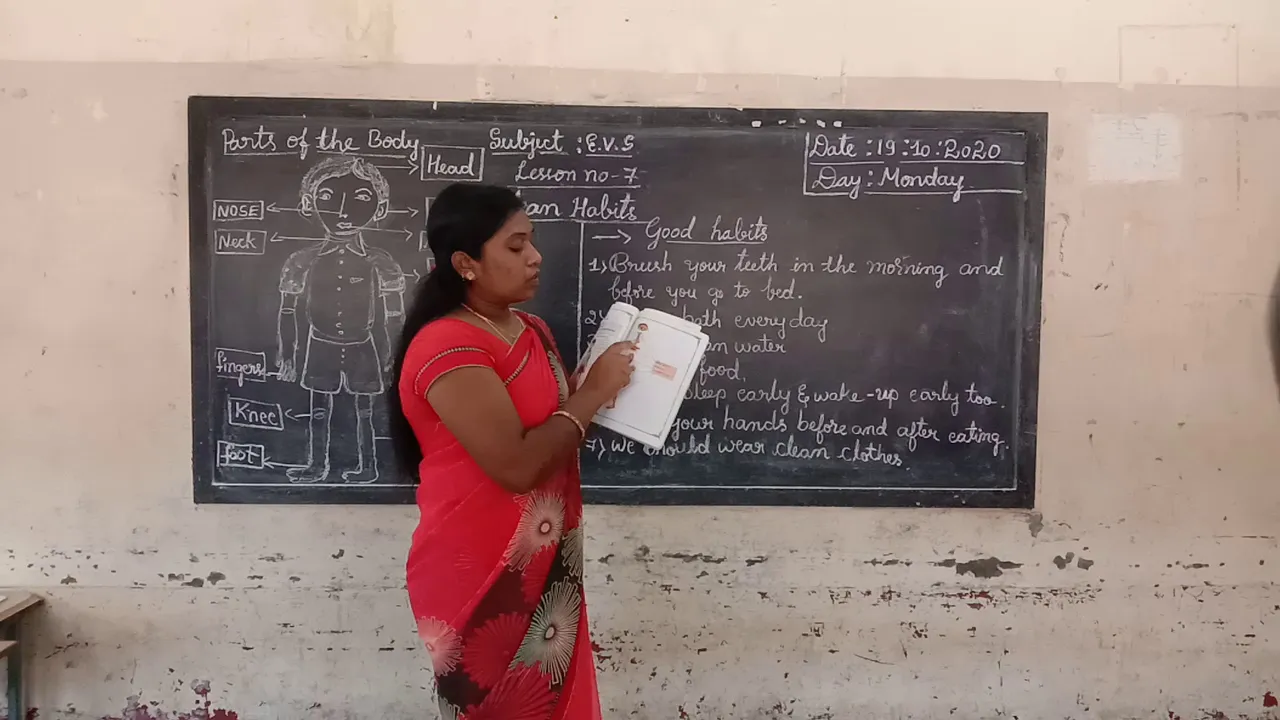 Parts of the Body
Head
NOSE
Neck
fingers
Knee
foot
Subject : E.V.S
Lesson no-7
Habits
Date : 19 : 10 : 2020
Day : Monday
→ Good habits
1) Brush your teeth in the morning and
before you go to bed.
bath everyday
water
food.
early & wake-up early too.
your hands before and after eating.
7) we should wear clean clothes.